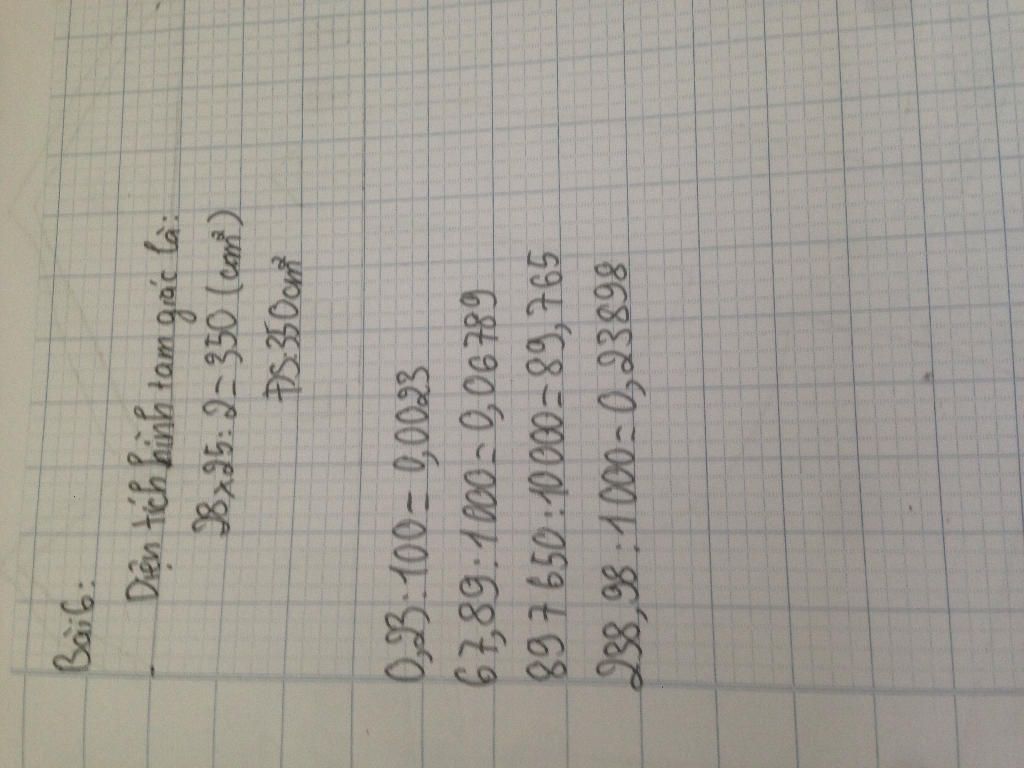 Bài 6:
- Diện tích hình tam giác là:
28 x 25 : 2 = 350 (cm²)
ĐS: 350 cm²
0,23 : 100 = 0,0023
67,89 : 1000 = 0,06789
897650 : 10000 = 89,765
238,98 : 1000 = 0,23898